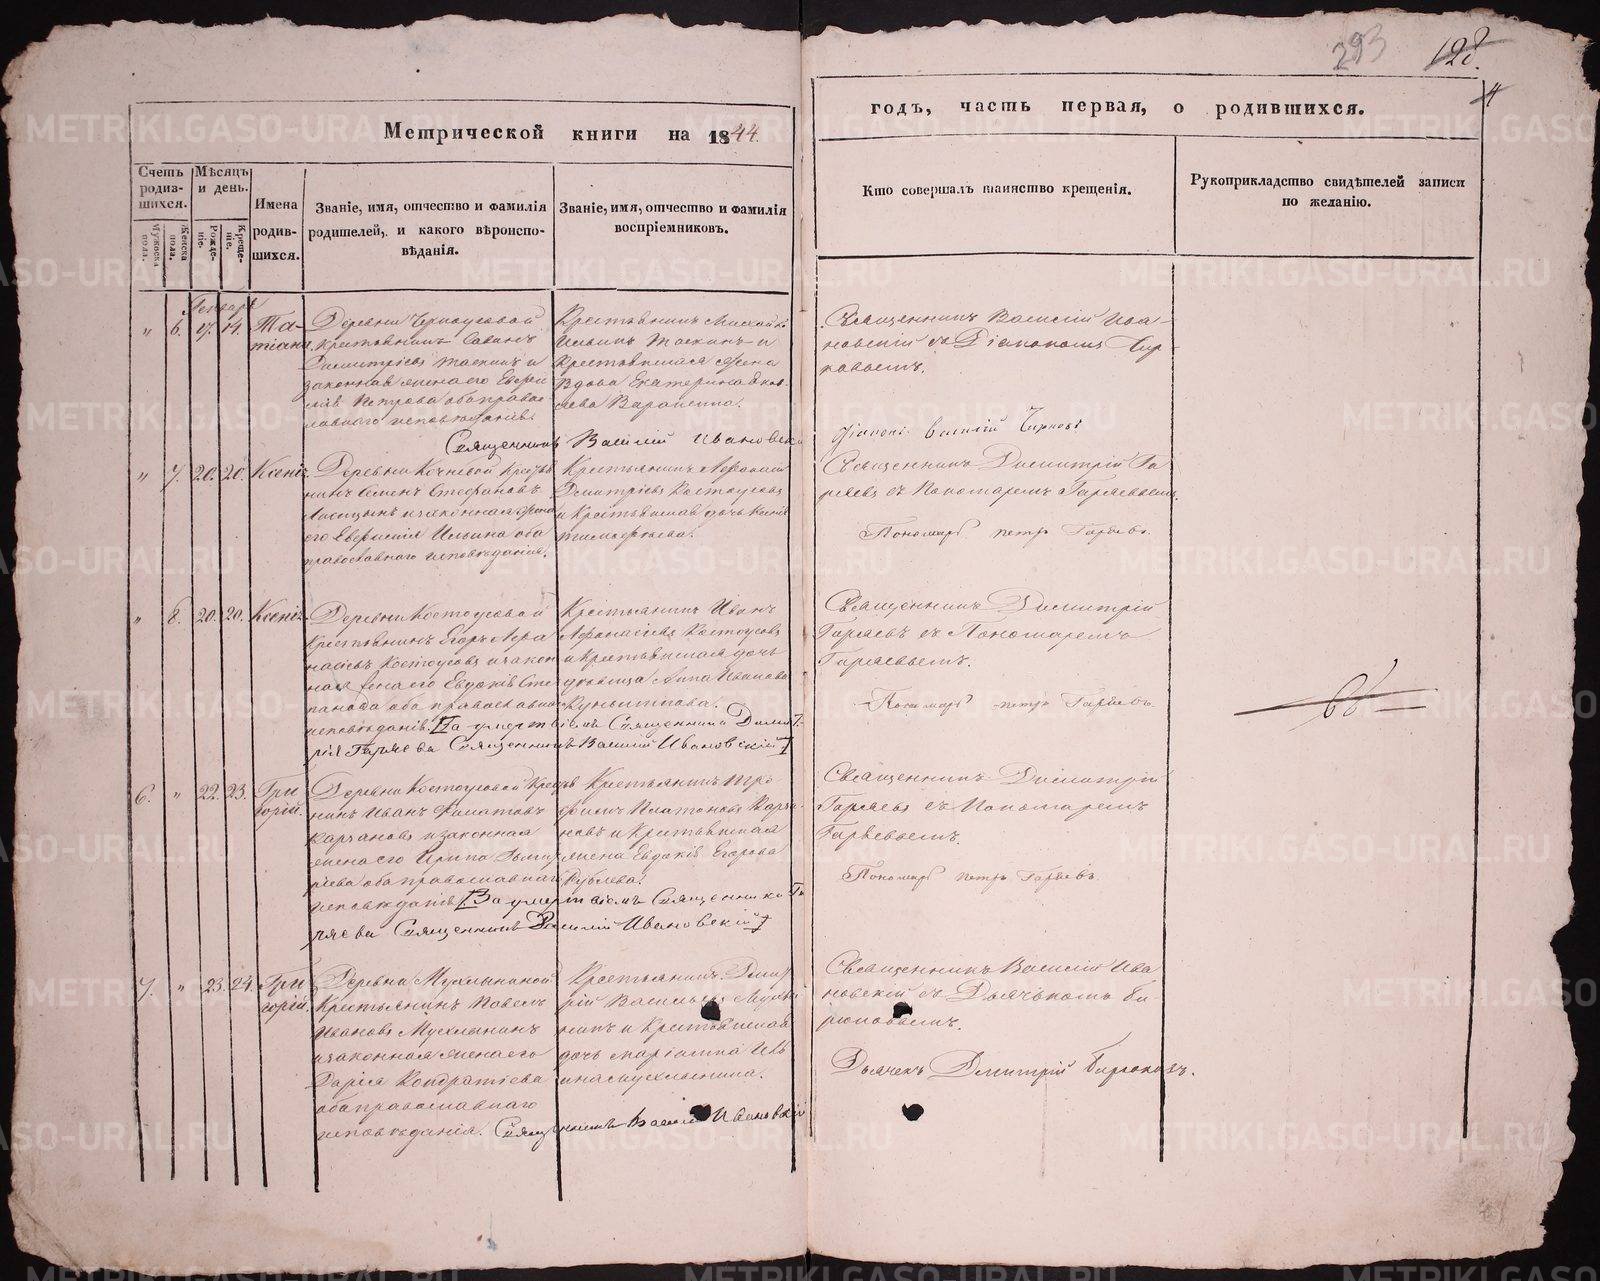 293
128.
4
Метрической книги на 1844.
годъ, часть первая, о родившихся.
Счетъ родившихся.
Мужеска пола.
Женска пола.
Мѣсяцъ и день.
Рожденіе.
Крещеніе.
Имена родившихся.
Званіе, имя, отчество и фамилія
родителей, и какого вѣроиспо-
вѣданія.
Званіе, имя, отчество и фамилія
воспріемниковъ.
Кто совершалъ таинство крещенія.
Рукоприкладство свидѣтелей записи
по желанію.
Генваря
" 6. 17. 19. Та-
тіана.
Деревни Черноусовой
крестьянинъ Савинъ
Димитріевъ
законная жена его Евге-
нія Петрова оба право-
славнаго исповѣданія.
Крестьянинъ Михайло
Ильинъ и
крестьянская жена
Вдова Екатерина
Священникъ Василій Ива-
новскій съ Діакономъ Чир-
ковымъ.
Священникъ Василій Ивановскій
Діаконъ Василій Чирковъ
" 7. 20. 20. Ксенія.
Деревни Кочневой Кресть
нинъ Семенъ Стефановъ
и законная жена
его Ильина оба
православнаго исповѣданія.
Крестьянинъ Афанасій
Дмитріевъ Костоусовъ
и Крестьянская дочь Ксенія
Тимофеева.
Священникъ Димитрій Га
ряевъ съ Пономаремъ Гаряевымъ.
Пономарь петръ Гаряевъ.
" 8. 20. 20. Ксенія.
Деревни Костоусовой
Крестьянинъ Егоръ Афа
насьевъ Костоусовъ и закон
ная жена его Евдокія Сте
панова оба православнаго
исповѣданія. За умертвіемъ Священника Димит
рія Гаряева Священникъ Василій Ивановскій
Крестьянинъ Иванъ
Афанасіевъ Костоусовъ
и Крестьянская дочь
дѣвица Анна Иванова
Священникъ Димитрій
Гаряевъ съ Пономаремъ
Гаряевымъ.
Пономарь петръ Гаряевъ.
6. " 22. 23. Гри
горій.
Деревни Костоусовой Кресть
нинъ Иванъ Филатовъ
Карзановъ и законная
жена его Ирина Дмит
ріева оба православнаго
исповѣданія. За умертвіемъ Священника Га
ряева Священникъ Василій Ивановскій
Крестьянинъ Тро
фимъ Платоновъ Карза
новъ и Крестьянская
жена Евдокія Егорова
Рублева.
Священникъ Димитрій
Гаряевъ съ Пономаремъ
Гаряевымъ.
Пономарь петръ Гаряевъ.
7. " 23. 24. Гри
горій.
Деревни Мухлыниной
Крестьянинъ Павелъ
Ивановъ Мухлынинъ
и законная жена его
Дарія Кондратіева
оба православнаго
исповѣданія.
Крестьянинъ Дмит
рій Васильевъ
нинъ и Крестьянская
дочь Маріамна
Мухлынина.
Священникъ Василій Ива
новскій съ Дьячькомъ Би-
рюковымъ.
Дьячекъ Дмитрій Бирюковъ.
Священникъ Василій Ивановскій
METRIKI.GASO-URAL.RU